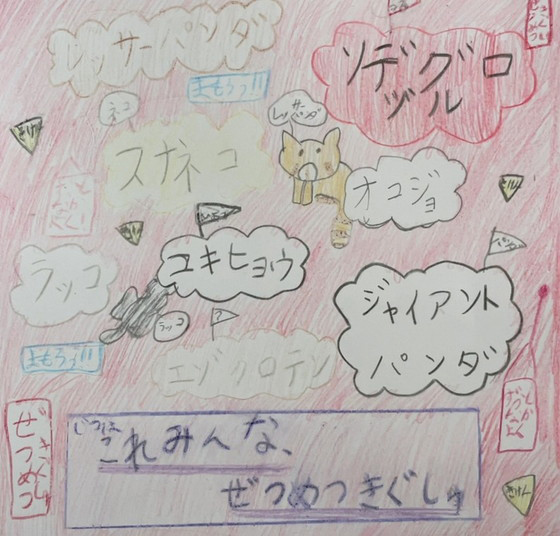 レッサーパンダ
まもろう!!
ソデグロ
ヅル
ネコ
レッサーパンダ
きけん
スナネコ
オコジョ
ユキヒョウ
パンダ
ラッコ
ラッコ
?
ジャイアント
パンダ
まもろう!!
エゾクロテン
ぜつめつ
きぐしゅ
じつは
これみんな、
ぜつめつきぐしゅ
きけん